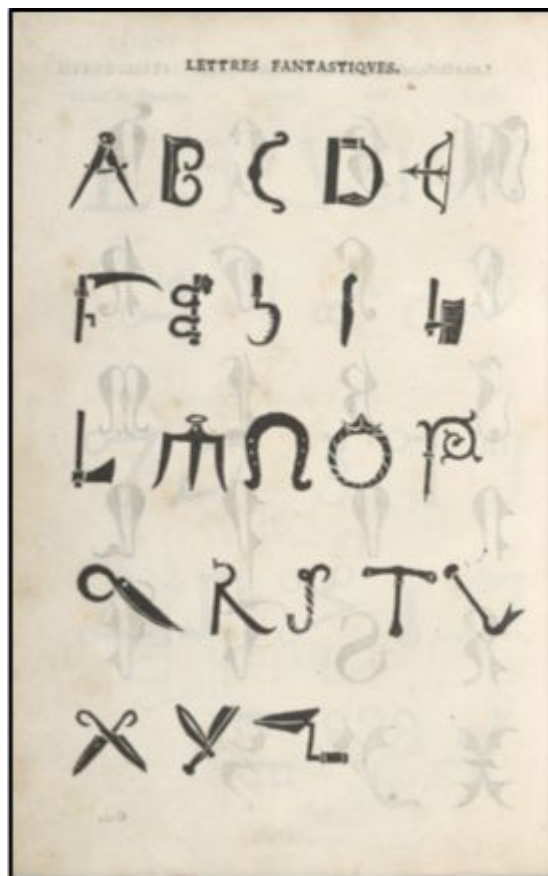 LETTRES FANTASTIQVES.
A B C D E
F G H I K
L M N O P
Q R S T V
X Y Z